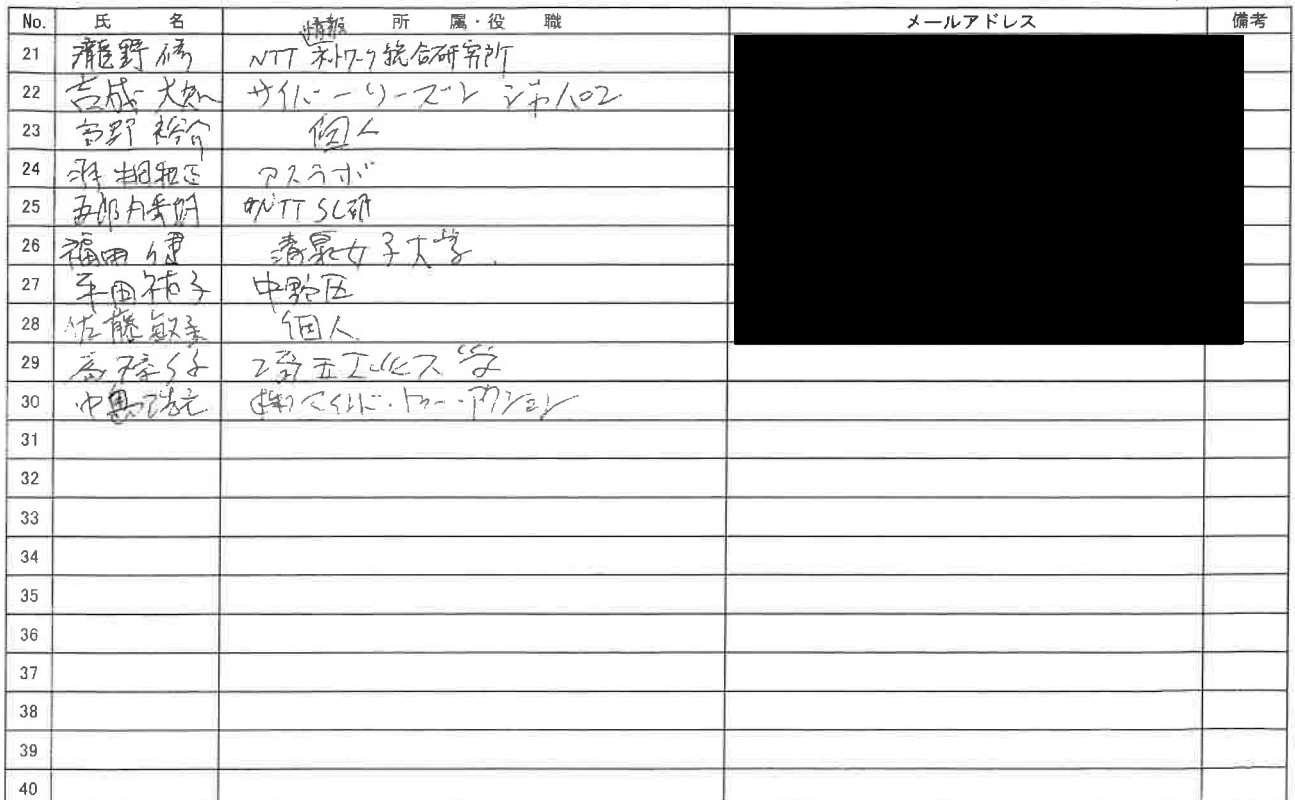 No. 氏名 所属・役職 メールアドレス 備考
21 瀧野 修 NTT 情報ネットワーク総合研究所
22 吉成 大 サイバーリーズン ジャパン
23 高野 裕介 個人
24 アスラボ
25 五郎丸秀樹 NTT SC研
26 福田 健 清泉女子大学
27 平田祐子 中野区
28 佐藤 個人
29 埼玉工業大学
30 中島浩光 (株)マインド・トゥー・アクション
31
32
33
34
35
36
37
38
39
40